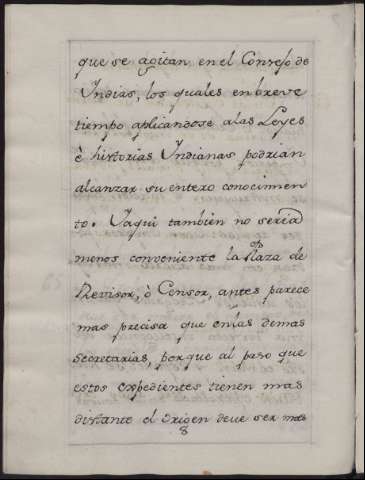 que se agitan en el Consejo de
Yndias, los quales en breve
tiempo aplicandose a las Leyes
è historias Yndianas podrian
alcanzar su entero conocimien
to. Yaqui tambien no seria
menos conveniente la Plaza de
Revisor, ò Censor, antes parece
mas precisa que en las demas
Secretarias, porque al paso que
estos expedientes tienen mas
distante el Origen deve ser mas
8